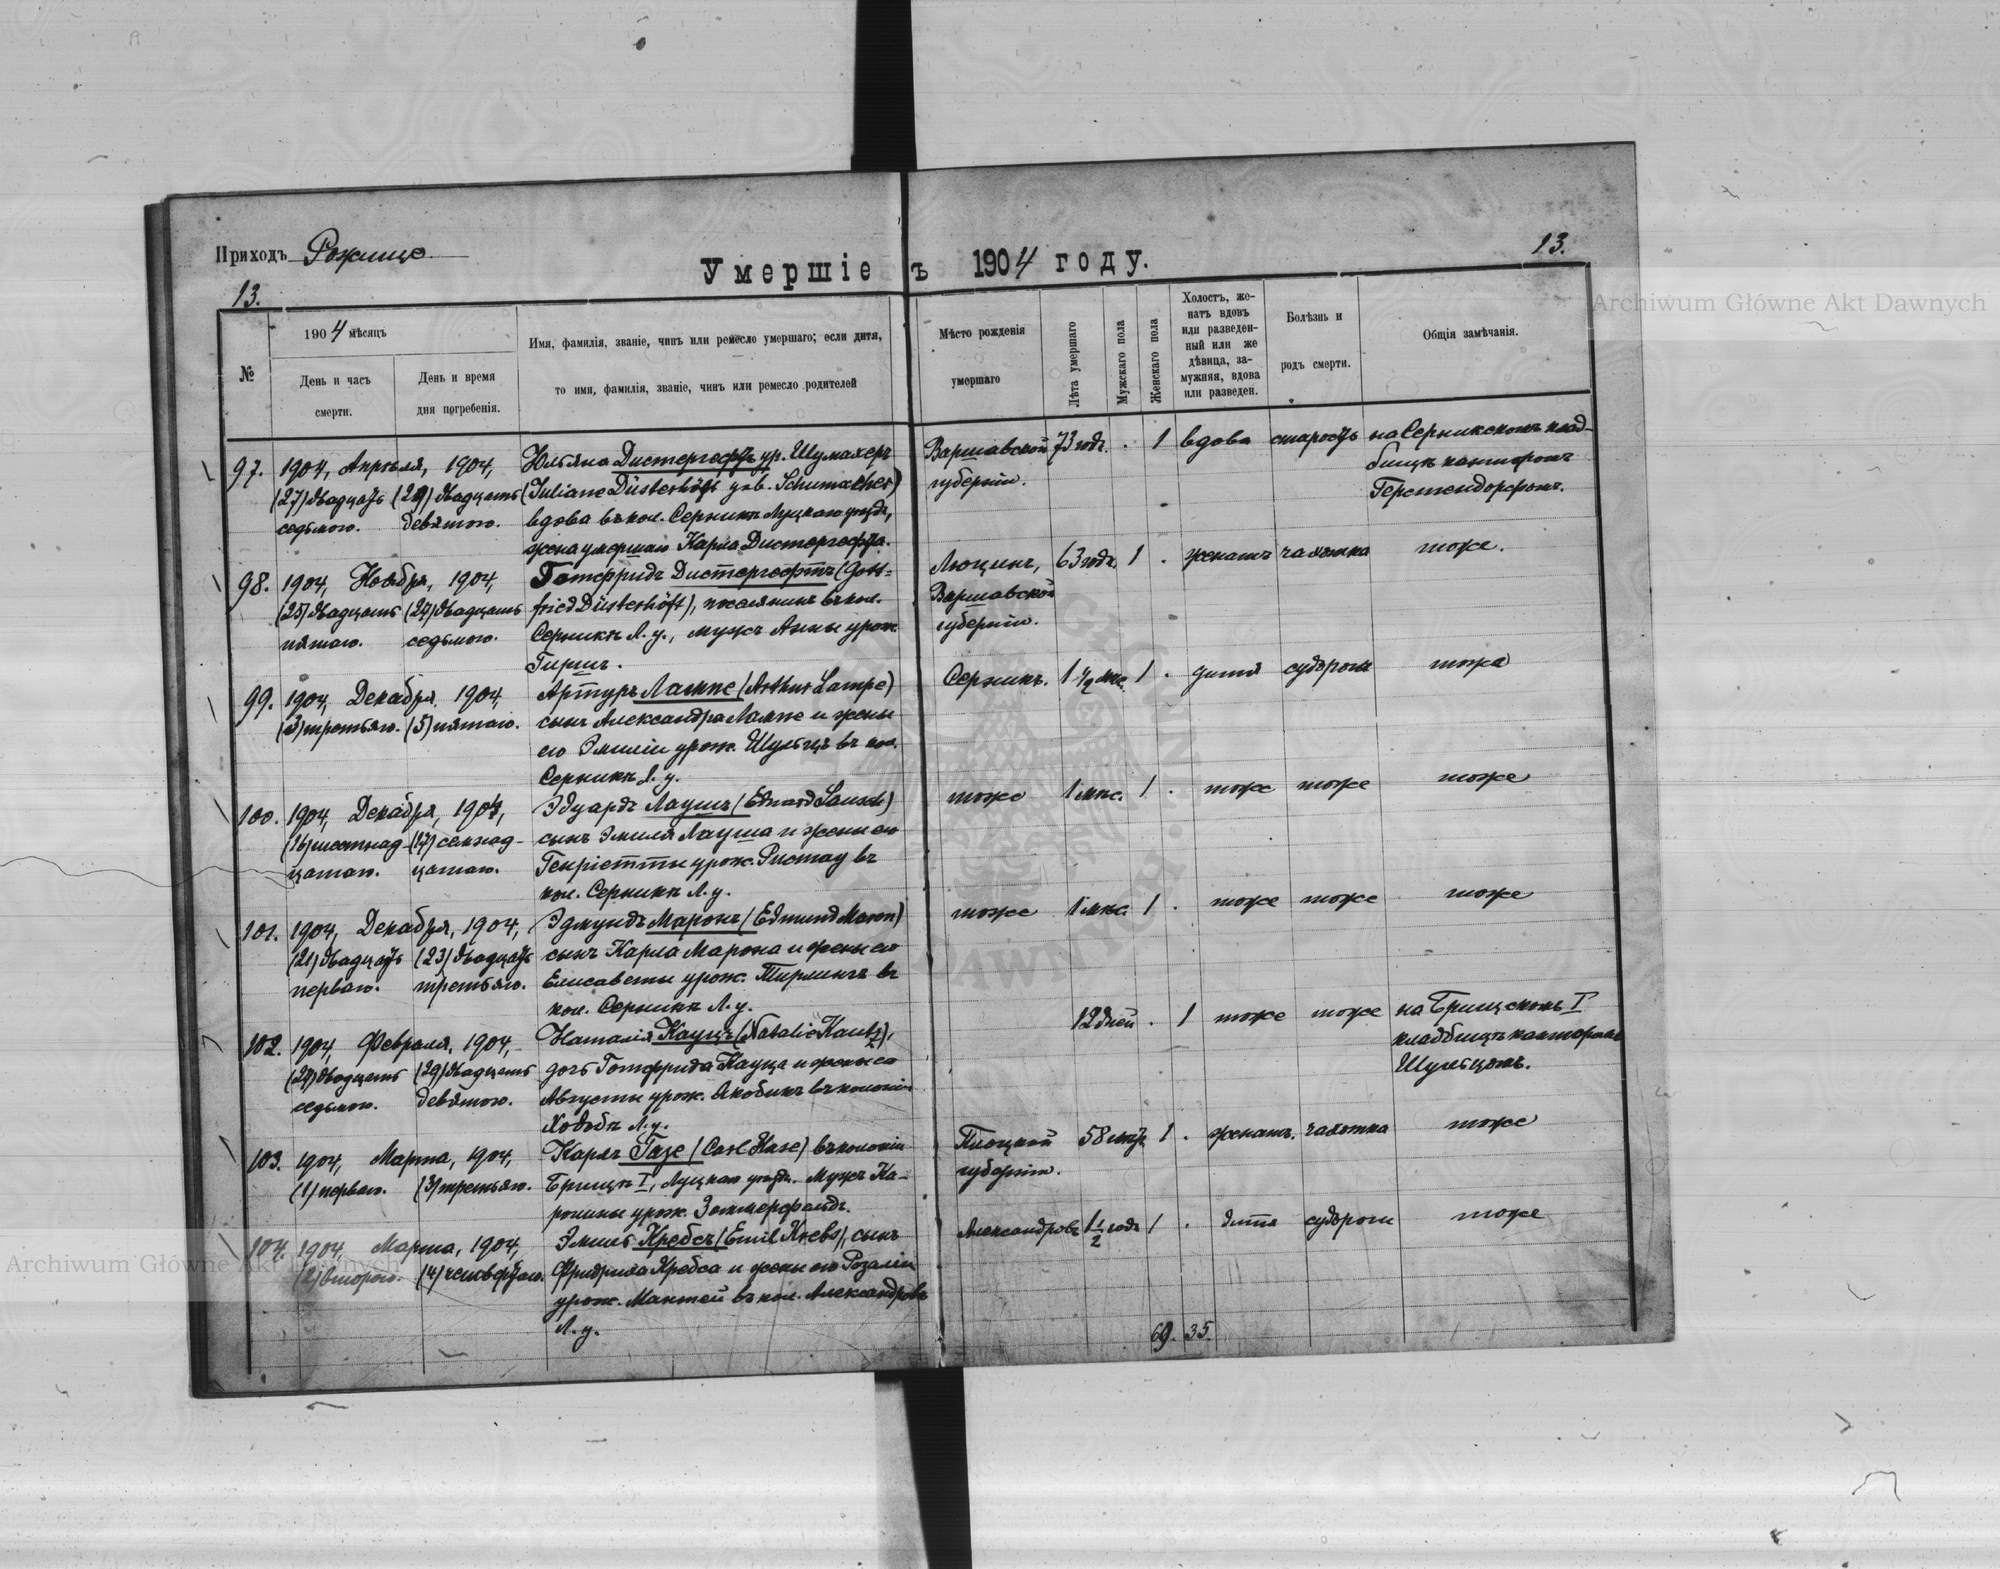 Приходъ Рожище
Умершіе въ 1904 году.
13.
13.
№
1904 мѣсяцъ
День и часъ
смерти.
День и время
дня погребенія.
Имя, фамилія, званіе, чинъ или ремесло умершаго; если дитя,
то имя, фамилія, званіе, чинъ или ремесло родителей
Мѣсто рожденія
умершаго
Лѣта умершаго
Мужскаго пола
Женскаго пола
Холостъ, же-
натъ вдовъ
или разведен-
ный или же
дѣвица, за-
мужняя, вдова
или разведен.
Болѣзнь и
родъ смерти.
Общія замѣчанія.
97. 1904, Апрѣля, 1904, Юльяна Дистергефтъ ур. Шумахеръ Варшавской 73 годъ. . 1 вдова старость на Серникскомъ клад-
(27) двадцать (29) двадцать (Juliane Düsterhöft geb. Schumacher) губерніи. бищѣ канторомъ
седьмого. девятого. вдова въ кол. Серники Луцкаго уѣзда, Герстендорфомъ.
жена умершаго Карла Дистергефта.
98. 1904, Ноября, 1904, Готфридъ Дистергефтъ (Gott- Люцинъ, 63 года 1 . женатъ чахотка тоже.
(25) двадцать (27) двадцать fried Düsterhöft), поселянинъ въ кол. Варшавской
пятаго. седьмого. Серники Л. у., мужъ Анны урож. губерніи.
Гиршъ.
99. 1904, Декабря, 1904, Артуръ Лампе (Arthur Lampe) Серники. 1 1/2 мѣс. 1 . дитя судороги тоже
(3) третьяго. (5) пятаго. сынъ Александра Лампе и жены
его Эмиліи урож. Шульцъ въ кол.
Серники Л. у.
100. 1904, Декабря, 1904, Эдуардъ Лаушъ (Eduard Lausch) тоже 1 мѣс. 1 . тоже тоже тоже
(16) шестнад- (17) семнад- сынъ Эмиля Лауша и жены его
цатаго. цатаго. Генріетты урож. Ристау въ
кол. Серники Л. у.
101. 1904, Декабря, 1904, Эдмундъ Маронъ (Edmund Maron) тоже 1 мѣс. 1 . тоже тоже тоже
(21) двадцать (23) двадцать сынъ Карла Марона и жены его
перваго. третьяго. Елисаветы урож. въ
кол. Серники Л. у.
102. 1904, Февраля, 1904, Наталія Кауцъ (Natalie Kautz), 12 дней . 1 тоже тоже на Брищскомъ I
(27) двадцать (29) двадцать дочь Готфрида Кауца и жены его кладбищѣ канторомъ
седьмого. девятого. Августы урож. Якобинъ въ колоніи Шульцомъ.
Л. у.
103. 1904, Марта, 1904, Карлъ Газе (Carl Hase) въ колоніи Плоцкой 58 лѣтъ 1 . женатъ. чахотка тоже
(1) перваго. (3) третьяго. Брищи I, Луцкаго уѣзда. Мужъ Ка- губерніи.
ролины урож. Зоммерфельдъ.
104. 1904, Марта, 1904, Эмиль Кребсъ (Emil Krebs), сынъ Александровъ 1 1/2 годъ 1 . дитя судороги тоже
(2) второго. (4) четвертаго. Фридриха Кребса и жены его Розаліи
урож. Мантей въ кол. Александровъ
Л. у.
69. 35.
Archiwum Główne Akt Dawnych
Archiwum Główne Akt Dawnych